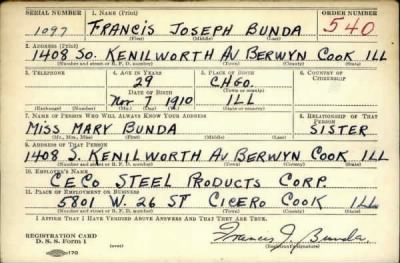 SERIAL NUMBER 1. NAME (Print) ORDER NUMBER
1097 FRANCIS JOSEPH BUNDA 540
(First) (Middle) (Last)
2. ADDRESS (Print)
1408 SO. KENILWORTH AV BERWYN COOK ILL
(Number and street or R. F. D. number) (Town) (County) (State)
3. TELEPHONE 4. AGE IN YEARS 5. PLACE OF BIRTH 6. COUNTRY OF CITIZENSHIP
29 CHGO.
DATE OF BIRTH (Town or county)
Nov 7 1910 ILL
(Exchange) (Number) (Mo.) (Day) (Yr.) (State or country)
7. NAME OF PERSON WHO WILL ALWAYS KNOW YOUR ADDRESS 8. RELATIONSHIP OF THAT PERSON
MISS MARY BUNDA SISTER
(Mr., Mrs., Miss) (First) (Middle) (Last)
9. ADDRESS OF THAT PERSON
1408 S. KENILWORTH AV BERWYN COOK ILL
(Number and street or R. F. D. number) (Town) (County) (State)
10. EMPLOYER'S NAME
CECO STEEL PRODUCTS CORP.
11. PLACE OF EMPLOYMENT OR BUSINESS
5801 W. 26 ST CICERO COOK ILL
(Number and street or R. F. D. number) (Town) (County) (State)
I AFFIRM THAT I HAVE VERIFIED ABOVE ANSWERS AND THAT THEY ARE TRUE.
REGISTRATION CARD
D. S. S. Form 1
Francis J. Bunda
(Registrant's signature)